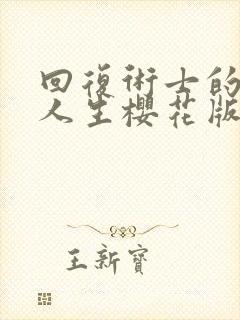 回復術士的
人生櫻花版
王新寶